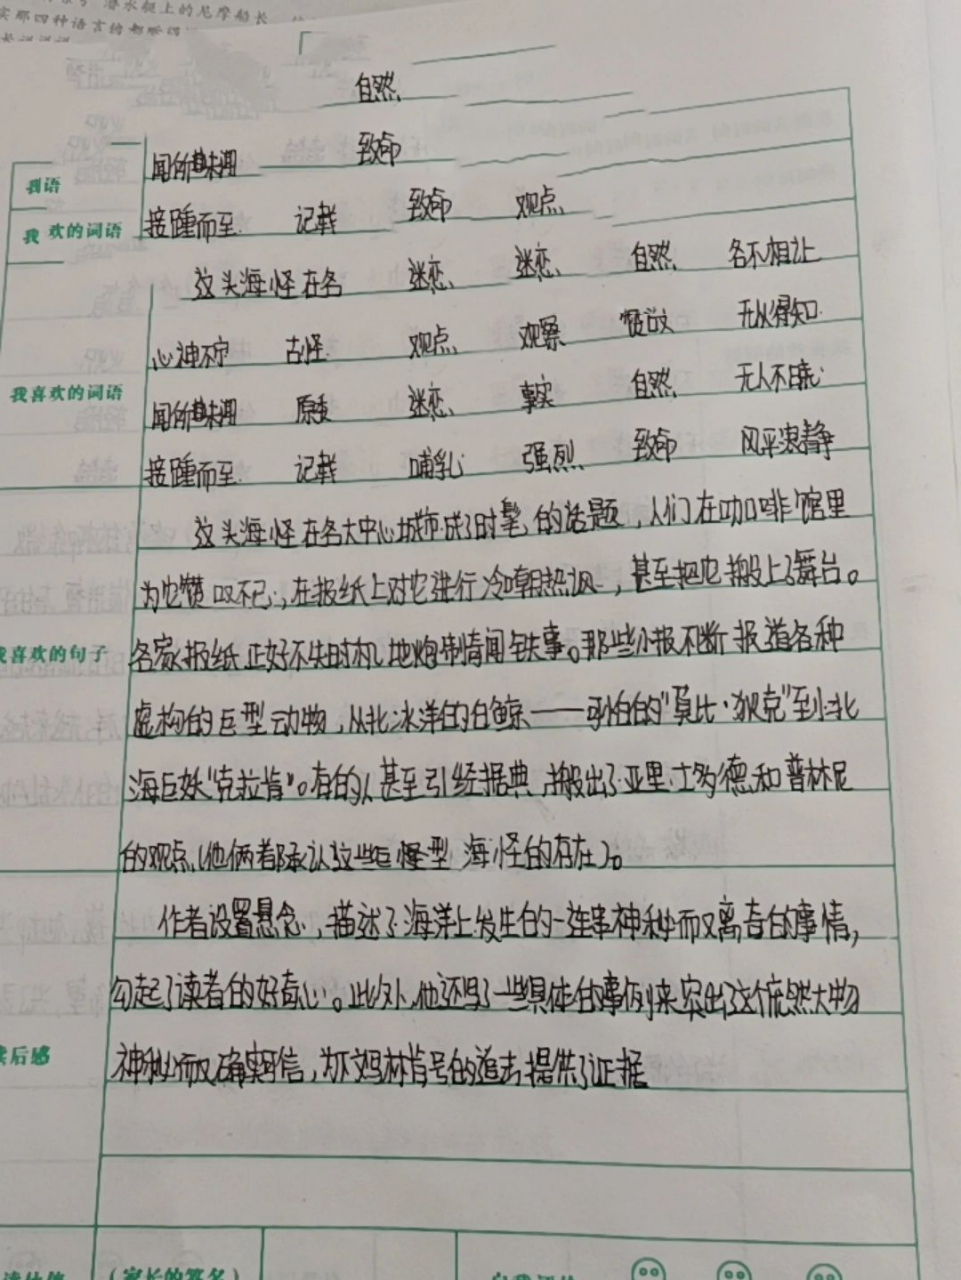 潜水艇上的尼摩船长
自然
闻所 趣闻 致命
我语
接踵而至 记载 致命 观点
我 欢的词语
这头海怪在各 迷恋 迷恋 自然 各不相让
心神不宁 古怪 观点 观察 无从得知
我喜欢的词语
闻所 趣闻 原委 迷恋 事实 自然 无人不晓
接踵而至 记载 哺乳 强烈 致命 风平浪静
这头海怪在各大中心城市成了时髦的话题，人们在咖啡馆里
为它赞叹不已，在报纸上对它进行冷嘲热讽，甚至把它搬上了舞台。
我喜欢的句子
各家报纸正好不失时机地炮制情闻轶事。那些小报不断报道各种
虚构的巨型动物，从北冰洋的白鲸——可怕的“莫比·狄克”到北
海巨妖“克拉肯”。有的人甚至引经据典，搬出了亚里士多德和普林尼
的观点（他俩都承认这些巨怪型海怪的存在）。
作者设置悬念，描述了海洋上发生的一连串神秘而又离奇的事情，
勾起了读者的好奇心。此外，他还写了一些具体的事例来突出了这个庞然大物
读后感
神秘而又确实可信，为下文林肯号的追击提供了证据
（家长的签名）